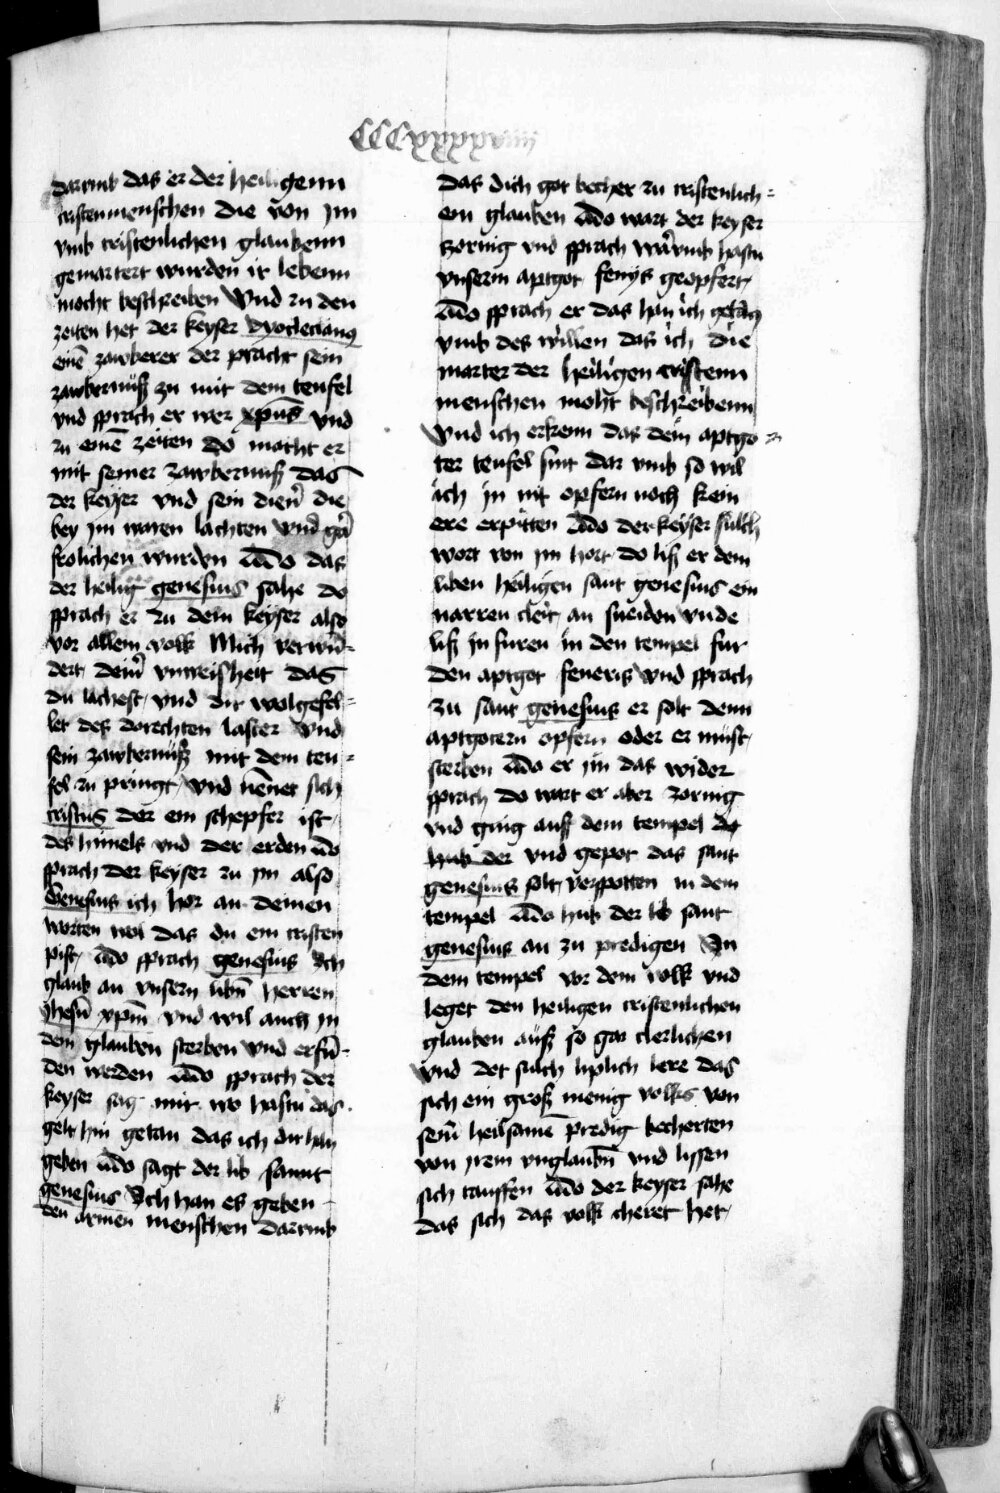 CCCxxxxviiii
darumb das er der heiligenn
cristenmenschen die von jm
vmb cristenlichen glaubenn
gemartert wurden ir lebenn
mocht beschreiben Vnd zu den
zeiten het der keyser dyocleciang
einē zawberer der pracht sein
zawbernüß zu mit dem teufel
vnd sprach er wer xpūs vnd
zu einē zeiten do macht er
mit seiner zawbernuß das
der keyser vnd sein dieñ die
bey jm waren lachten vnd gar
frolichen wurden Vdo das
der heilig genesius sahe do
sprach er zu dem keyser also
vor allem volk Mich verwū=
dert deiner vnweisheit das
du lachest vnd dir wolgefel=
let des dorechten laster vnd
sein zawbernüß mit dem teu=
fel zu pringt vnd nēnet sich
cristus der ein schepfer ist
des himels vnd der erden Vdo
sprach der keyser zu jm also
Genesius ich hor an deinen
worten wol das du ein cristen
pist Vdo sprach genesius Ich
glaub an vnsern libñ herren
Jhesū xpm̄ vnd wil auch jn
dem glauben sterben vnd erfū=
den werden Vdo sprach der
keyser sag mir wo hastu das
gelt hin getan das ich dir han
geben Vdo sagt der lib sannt
genesius Ich han es geben
den armen menschen darumb
das dich got becher zu cristenlich=
em glauben Vdo wart der keyser
zornig vnd sprach warvmb hastu
vnserm aptgot fenys geopfert
Vdo sprach er das han ich getan
vmb des willen das ich die
marter der heiligen cristenn
menschen moht beschreibenn
Vnd ich erkenn das dein aptgo=
ter teufel sint dar vmb so wil
ich jn nit opfern noch kein
ere erpitten Vdo der keyser sulch
wort von jm hort do liß er dem
liben heiligen sant genesius ein
narren cleit an sneiden vnde
liß jn furen in den tempel fur
den aptgot feneris vnd sprach
zu sant genesius er solt denn
aptgotern opfern oder er must
sterben Vdo er jm das wider
sprach do wart er aber zornig
vnd ging auß dem tempel do
hub der vnd gepot das sant
genesius solt verspotten in dem
tempel Vdo hub der lib sant
genesius an zu predigen In
dem tempel vor dem volk vnd
leget den heiligen cristenlichen
glauben auß so gar clerlichen
vnd det sulch liplich lere das
sich ein groß menig volks von
seiñ heilsamē predig becherten
von jrem vnglaubñ vnd lissen
sich tauffen Vdo der keyser sahe
das sich das volk cheret het